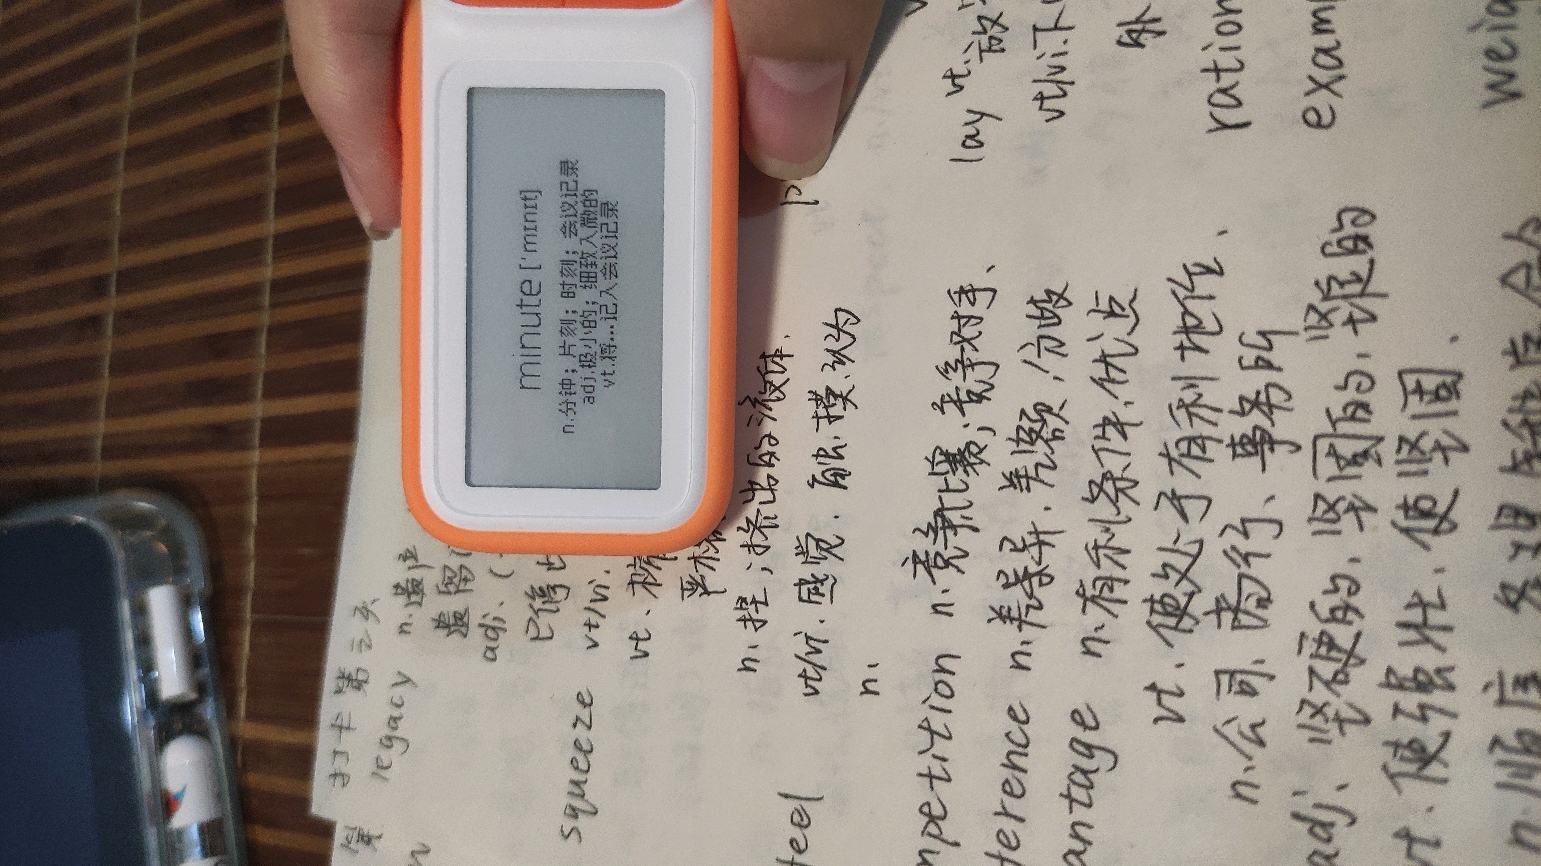 minute ['mɪnɪt]
n.分钟；片刻；时刻；会议记录
adj.极小的；细致入微的
vt.将...记入会议记录
打卡第三天
legacy n.遗产
adj.(
已停
squeeze vt/vi.
vt.
严格
n.捏;挤出的液体.
feel vt/vi.感觉.触摸.认为
n.
mpetition n.竞争,比赛,竞争对手、
ference n.差异.差额,分歧
antage n.有利条件,优点
vt.使处于有利地位、
n.公司、商行、事务所
adj、坚硬的,坚固的,坚定的
vt.使强壮.使坚固.
n.顺序
lay vt.放
vt/vi.下
ration
exam
weig